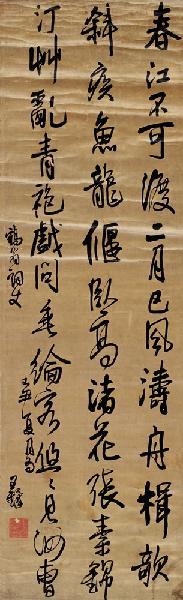 春江不可渡二月已風濤舟楫欹
斜疾魚龍偃臥高渚花張素錦
汀艸亂青袍戲問垂綸客悠〻見汝曹
詞丈
夏月
王鐸